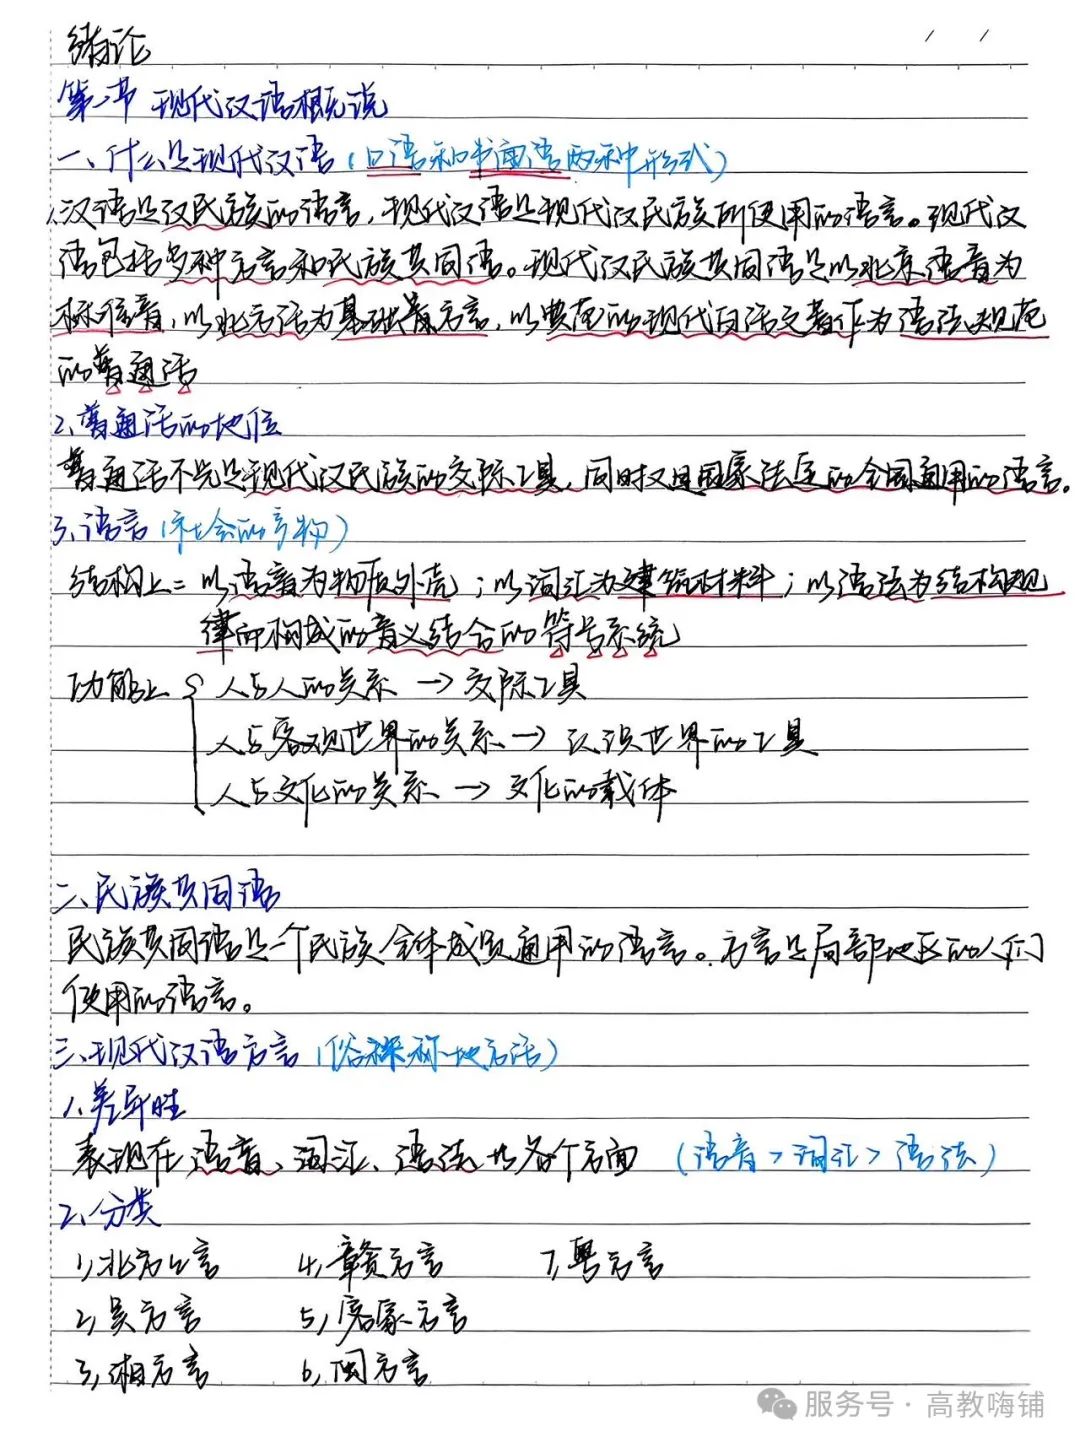 绪论
第一节 现代汉语概说
一、什么是现代汉语(口语和书面语两种形式)
1.汉语是汉民族的语言,现代汉语是现代汉民族所使用的语言。现代汉
语包括多种方言和民族共同语。现代汉民族共同语是以北京语音为
标准音,以北方话为基础方言,以典范的现代白话文著作为语法规范
的普通话
2、普通话的地位
普通话不光是现代汉民族的交际工具,同时又是国家法定的全国通用的语言。
3、语言(社会的产物)
结构上=以语音为物质外壳;以词汇为建筑材料;以语法为结构规
律而构成的音义结合的符号系统
功能上 人与人的关系 → 交际工具
人与客观世界的关系 → 认识世界的工具
人与文化的关系 → 文化的载体
二、民族共同语
民族共同语是一个民族全体成员通用的语言。方言是局部地区的人们
使用的语言。
三、现代汉语方言(俗称地方话)
1、差异性
表现在语音、词汇、语法各个方面 (语音>词汇>语法)
2、分类
1,北方方言 4,赣方言 7,粤方言
2,吴方言 5,客家方言
3,湘方言 6,闽方言
服务号·高教嗨铺